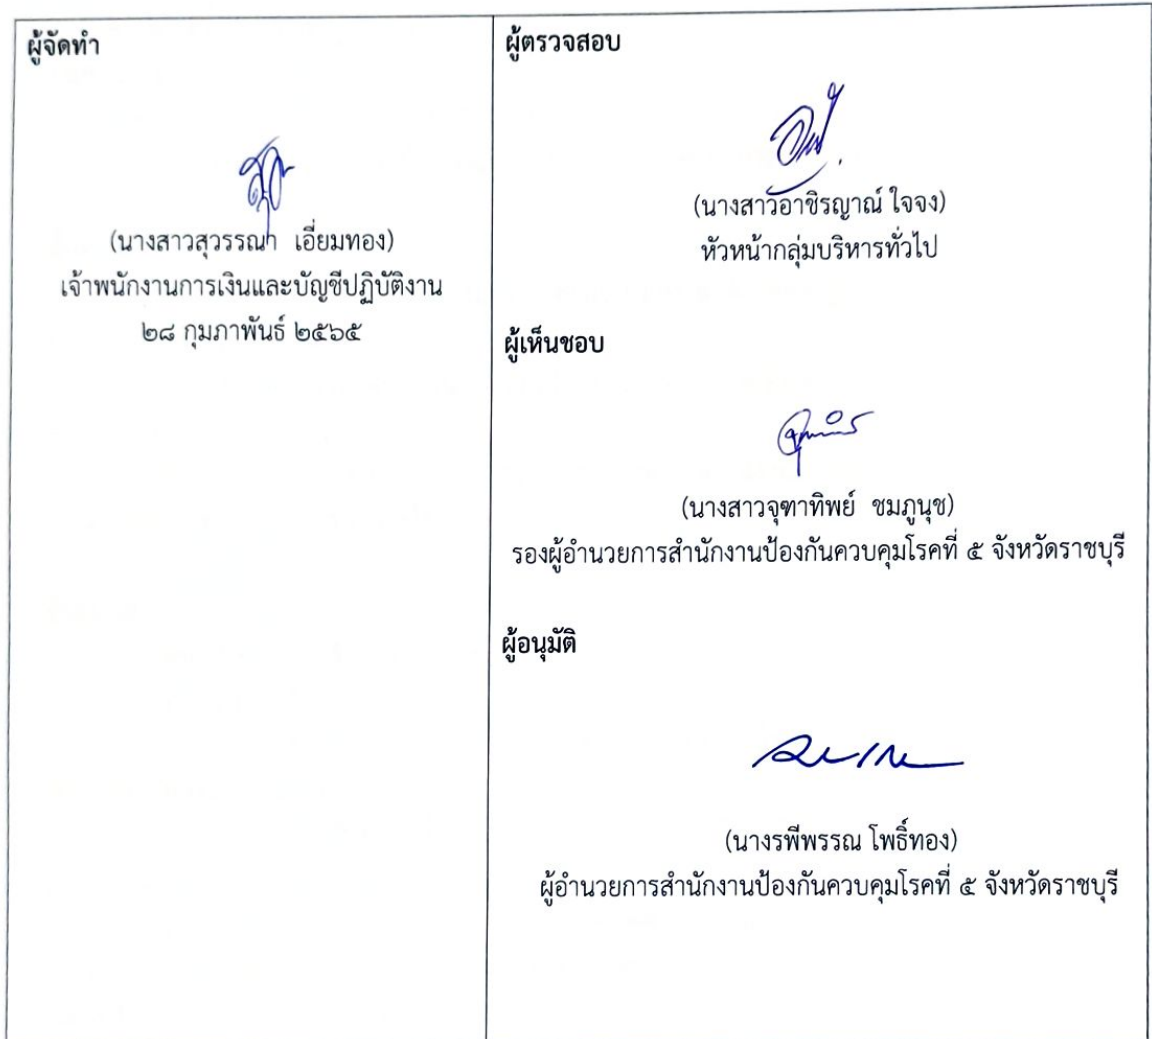 ผู้จัดทำ
(นางสาวสุวรรณา เอี่ยมทอง)
เจ้าพนักงานการเงินและบัญชีปฏิบัติงาน
๒๘ กุมภาพันธ์ ๒๕๖๕
ผู้ตรวจสอบ
(นางสาวอาชิรญาณ์ ใจจง)
หัวหน้ากลุ่มบริหารทั่วไป
ผู้เห็นชอบ
(นางสาวจุฑาทิพย์ ชมภูนุช)
รองผู้อำนวยการสำนักงานป้องกันควบคุมโรคที่ ๕ จังหวัดราชบุรี
ผู้อนุมัติ
(นางรพีพรรณ โพธิ์ทอง)
ผู้อำนวยการสำนักงานป้องกันควบคุมโรคที่ ๕ จังหวัดราชบุรี